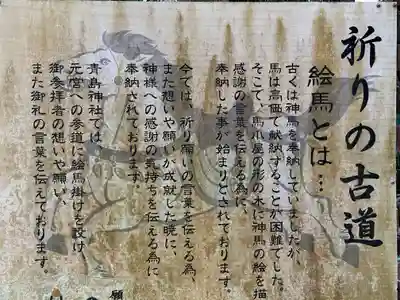 祈りの古道
絵馬とは…
古くは神馬を奉納していましたが、
馬は高価で献納することが困難でした。
そこで、馬小屋の形の木に神馬の絵を描
感謝の言葉を伝える為に、
奉納した事が始まりとされております。
今では、祈り願いの言葉を伝える為、
また想いや願いが成就した暁に、
神様への感謝の気持ちを伝える為に
奉納されております。
青島神社では、
元宮への参道に絵馬掛けを設け、
御参拝者の想いや願い、
また御礼の言葉を伝えております。
願